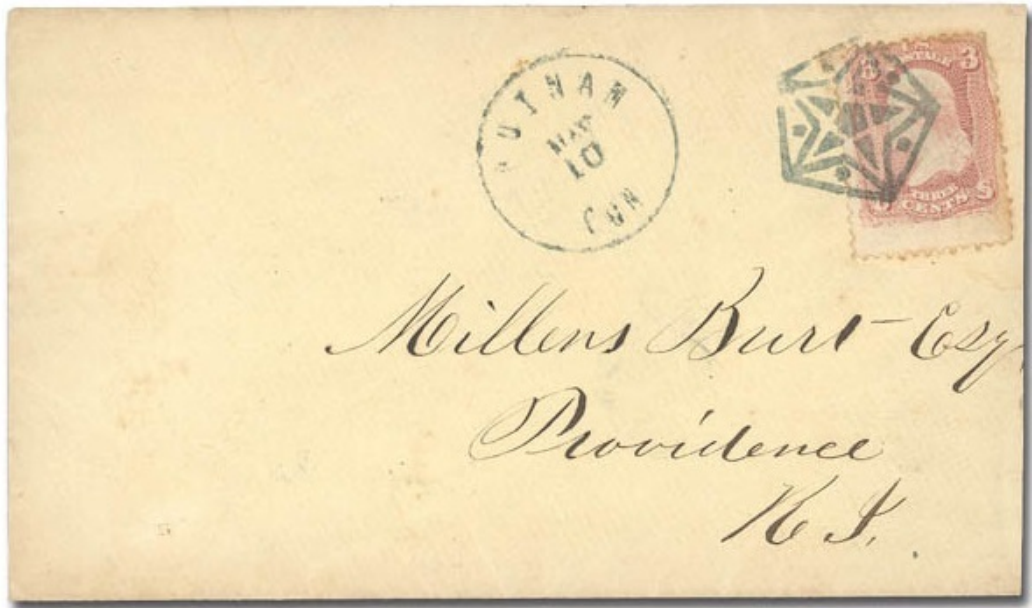 PUTNAM
MAY
10
CON
U.S. POSTAGE
3 3
THREE
CENTS
Millens Burt Esq.
Providence
R I.